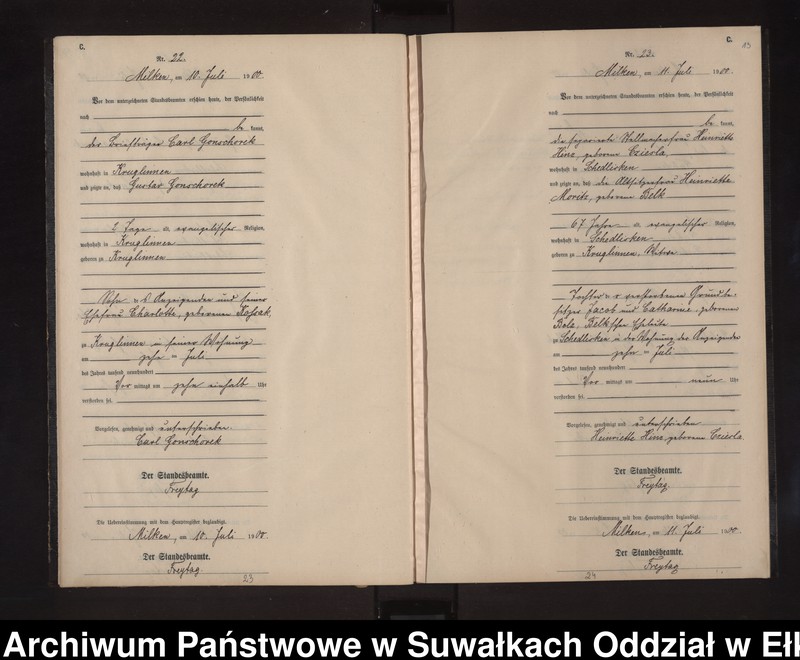 C.
Nr. 22.
Milken, am 10. Juli 1900.
Vor dem unterzeichneten Standesbeamten erschien heute, der Persönlichkeit
nach
be kannt,
der Briefträger Carl Gonschorek
wohnhaft in Kruglinnen
und zeigte an, daß Gustav Gonschorek
2 Tage a. evangelischer Religion,
wohnhaft in Kruglinnen
geboren zu Kruglinnen
Sohn des Anzeigenden und seiner
Ehefrau Charlotte, geborenen Kossak,
zu Kruglinnen in seiner Wohnung
am zehnten Juli
des Jahres tausend neunhundert
Vor mittags um zehn einhalb Uhr
verstorben sei.
Vorgelesen, genehmigt und unterschrieben.
Carl Gonschorek
Der Standesbeamte.
Freytag
Die Uebereinstimmung mit dem Hauptregister beglaubigt.
Milken, am 10. Juli 1900
Der Standesbeamte.
Freytag
23
C.
Nr. 23.
Milken, am 11. Juli 1900.
Vor dem unterzeichneten Standesbeamten erschien heute, der Persönlichkeit
nach
be kannt,
die separierte Stellmacherfrau Henriette
Hinz, geborene Czierla
wohnhaft in Schedlisken
und zeigte an, daß die Altsitzerfrau Heinriette
Moritz, geborene Belk
67 Jahre a. evangelischer Religion,
wohnhaft in Schedlisken
geboren zu Kruglinnen, Witwe
Tochter der verstorbenen Grundbe-
sitzer Jacob und Catharine, geborenen
Belk'schen Eheleute
zu Schedlisken in der Wohnung der Anzeigenden
am zehnten Juli
des Jahres tausend neunhundert
Vor mittags um neun Uhr
verstorben sei.
Vorgelesen, genehmigt und unterschrieben
Heinriette Hinz geborene Czierla
Der Standesbeamte.
Freytag.
Die Uebereinstimmung mit dem Hauptregister beglaubigt.
Milken, am 11. Juli 1900.
Der Standesbeamte.
Freytag
24
Archiwum Państwowe w Suwałkach Oddział w Ełk